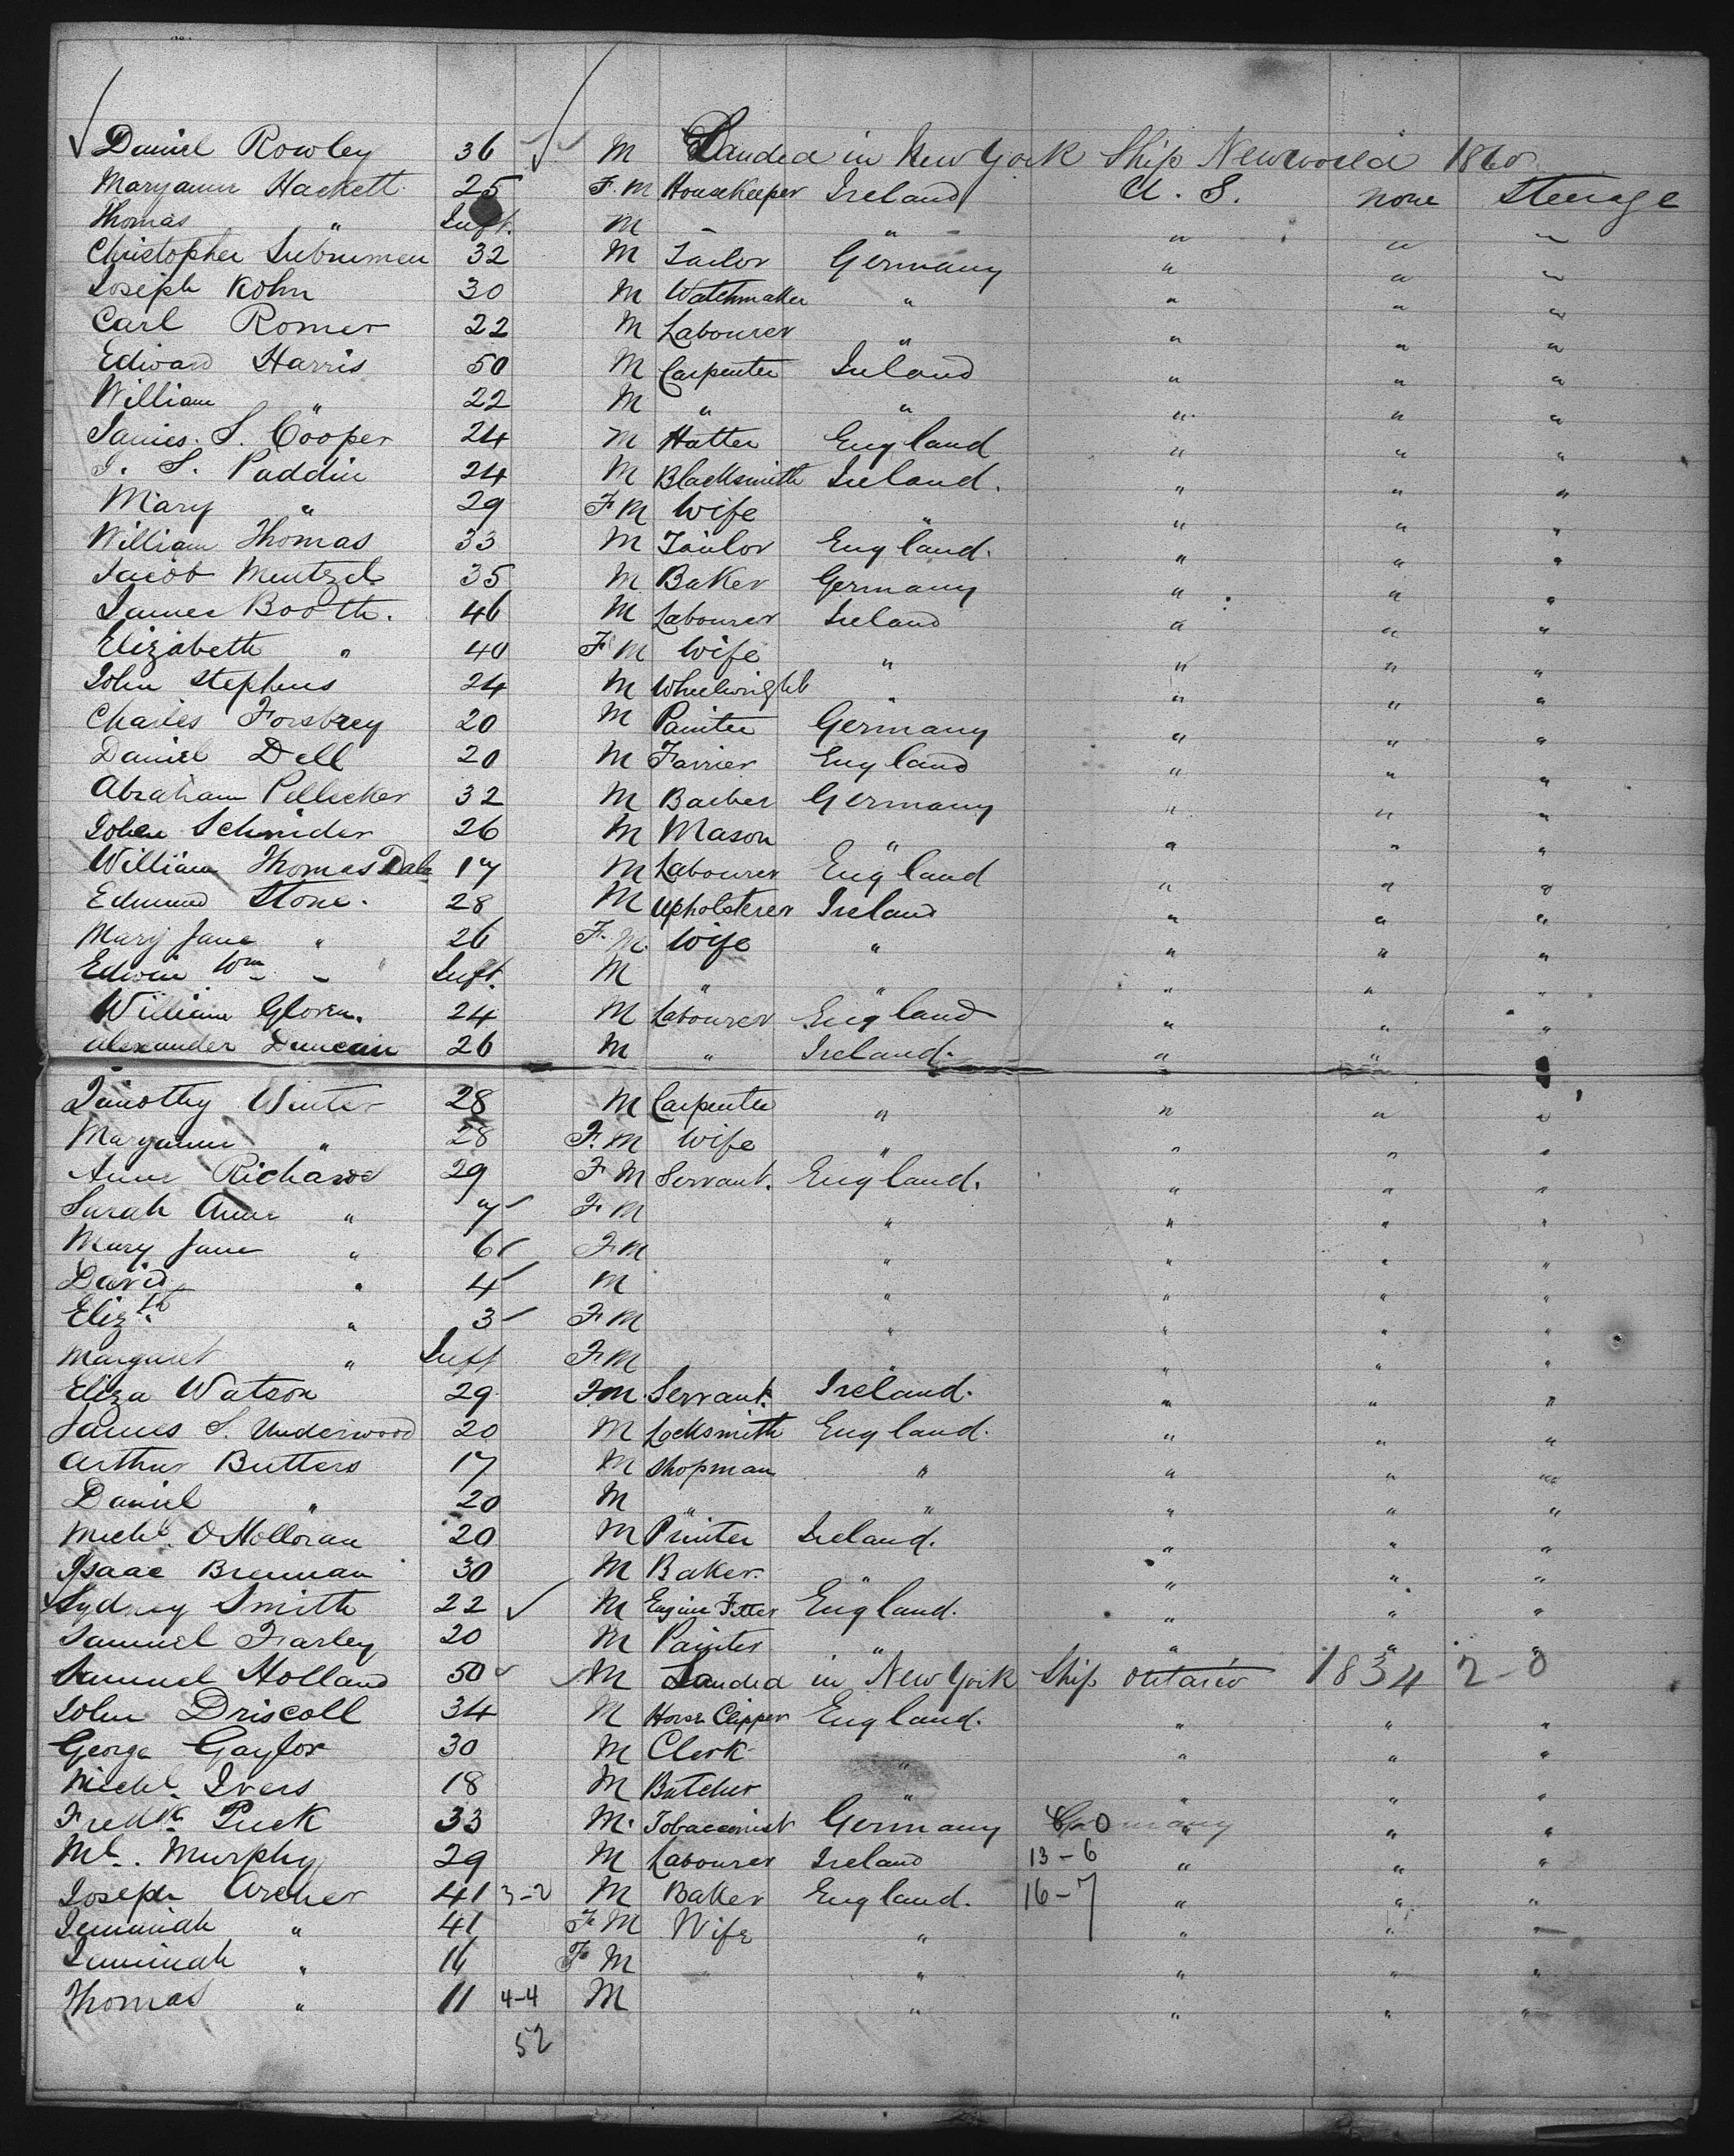 Daniel Rowley 36 M Landed in New York Ship Newworld 1860
Maryanne Hackett 25 F. M Housekeeper Ireland U. S. none Steerage
Thomas " Inft. M " " " " "
Christopher 32 M Tailor Germany " " "
Joseph Kohn 30 M Watchmaker " " " "
Carl Romer 22 M Labourer " " " "
Edward Harris 50 M Carpenter Ireland " " "
William " 22 M " " " " "
James. S. Cooper 24 M Hatter England " " "
J. S. Paddin 24 M Blacksmith Ireland. " " "
Mary " 29 F M Wife " " " "
William Thomas 33 M Tailor England. " " "
Jacob Mentzel 35 M Baker Germany " " "
James Booth. 46 M Labourer Ireland " " "
Elizabeth " 40 F M Wife " " " "
John Stephens 24 M Wheelwright " " " "
Charles Forsbrey 20 M Painter Germany " " "
Daniel Dell 20 M Farrier England " " "
Abraham Pellecker 32 M Barber Germany " " "
John Schnider 26 M Mason " " " "
William Thomas Dale 17 M Labourer England " " "
Edmund Stone. 28 M Upholsterer Ireland " " "
Mary Jane " 26 F. M. Wife " " " "
Edwin Wm " Inft. M " " " " "
William Glover. 24 M Labourer England " " "
Alexander Duncan 26 M " Ireland. " " "
Timothy Winter 28 M Carpenter " " " "
Maryanne " 28 F. M Wife " " " "
Anne Richards 29 F M Servant. England. " " "
Sarah Anne " 7 F. M " " " "
Mary Jane " 6 F M " " " "
David " 4 M " " " "
Elizth. " 3 F M " " " "
Margaret " Inft F M " " "
Eliza Watson 29 F M. Servant. Ireland. " " "
James S. Underwood 20 M Locksmith England. " " "
Arthur Butters 17 M Shopman " " " "
Daniel " 20 M " " " " "
Michl. O Holloran 20 M Printer Ireland. " " "
Isaac Brennan 30 M Baker. " " " "
Sydney Smith 22 M Engine Fitter England. " " "
Samuel Farley 20 M Painter " " " "
Samuel Holland 50 M Landed in New York Ship Ontario 1834 2-0
John Driscoll 34 M Horse Clipper England. " " "
George Gaylor 30 M Clerk " " " "
Michl. Ivers 18 M Butcher " " " "
Fredk. Puck 33 M. Tobacconist Germany " " "
Ml. Murphy 29 M Labourer Ireland 13-6 " " "
Joseph Archer 41 3-2 M Baker England. 16-7 " " "
Jemimah " 41 F M Wife " " " "
Jemimah " 16 F M " " " "
Thomas " 11 4-4 M " " " "
52